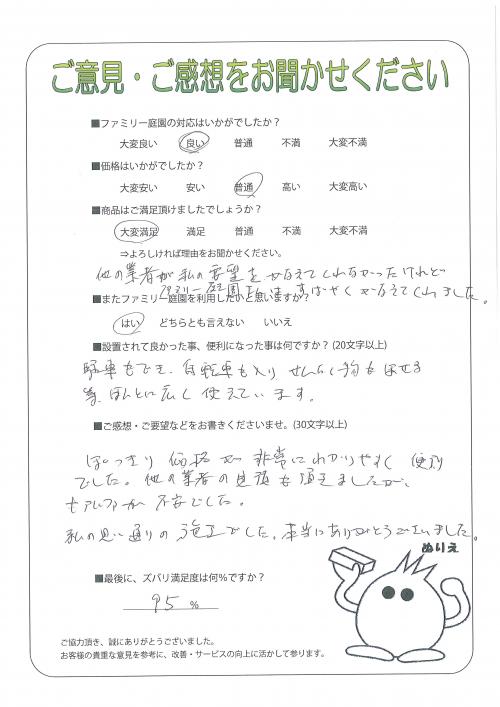 ご意見・ご感想をお聞かせください
■ファミリー庭園の対応はいかがでしたか？
大変良い 良い 普通 不満 大変不満
■価格はいかがでしたか？
大変安い 安い 普通 高い 大変高い
■商品はご満足頂けましたでしょうか？
大変満足 満足 普通 不満 大変不満
⇒よろしければ理由をお聞かせください。
他の業者が私の要望をかなえてくれなかったけれど
ファミリー庭園さんは、すばやくかなえてくれました。
■またファミリー庭園を利用したいと思いますか？
はい どちらとも言えない いいえ
■設置されて良かった事、便利になった事は何ですか？(20文字以上)
駐車もでき、自転車も入り せんたく物も干せる
等、ほんとに広く使えています。
■ご感想・ご要望などをお書きくださいませ。(30文字以上)
はっきり価格が非常にわかりやすく便利
でした。他の業者の見積も頂きましたが、
不安でした。
私の思い通りの施工でした。本当にありがとうございました。
ぬりえ
■最後に、ズバリ満足度は何％ですか？
95 %
ご協力頂き、誠にありがとうございました。
お客様の貴重な意見を参考に、改善・サービスの向上に活かして参ります。